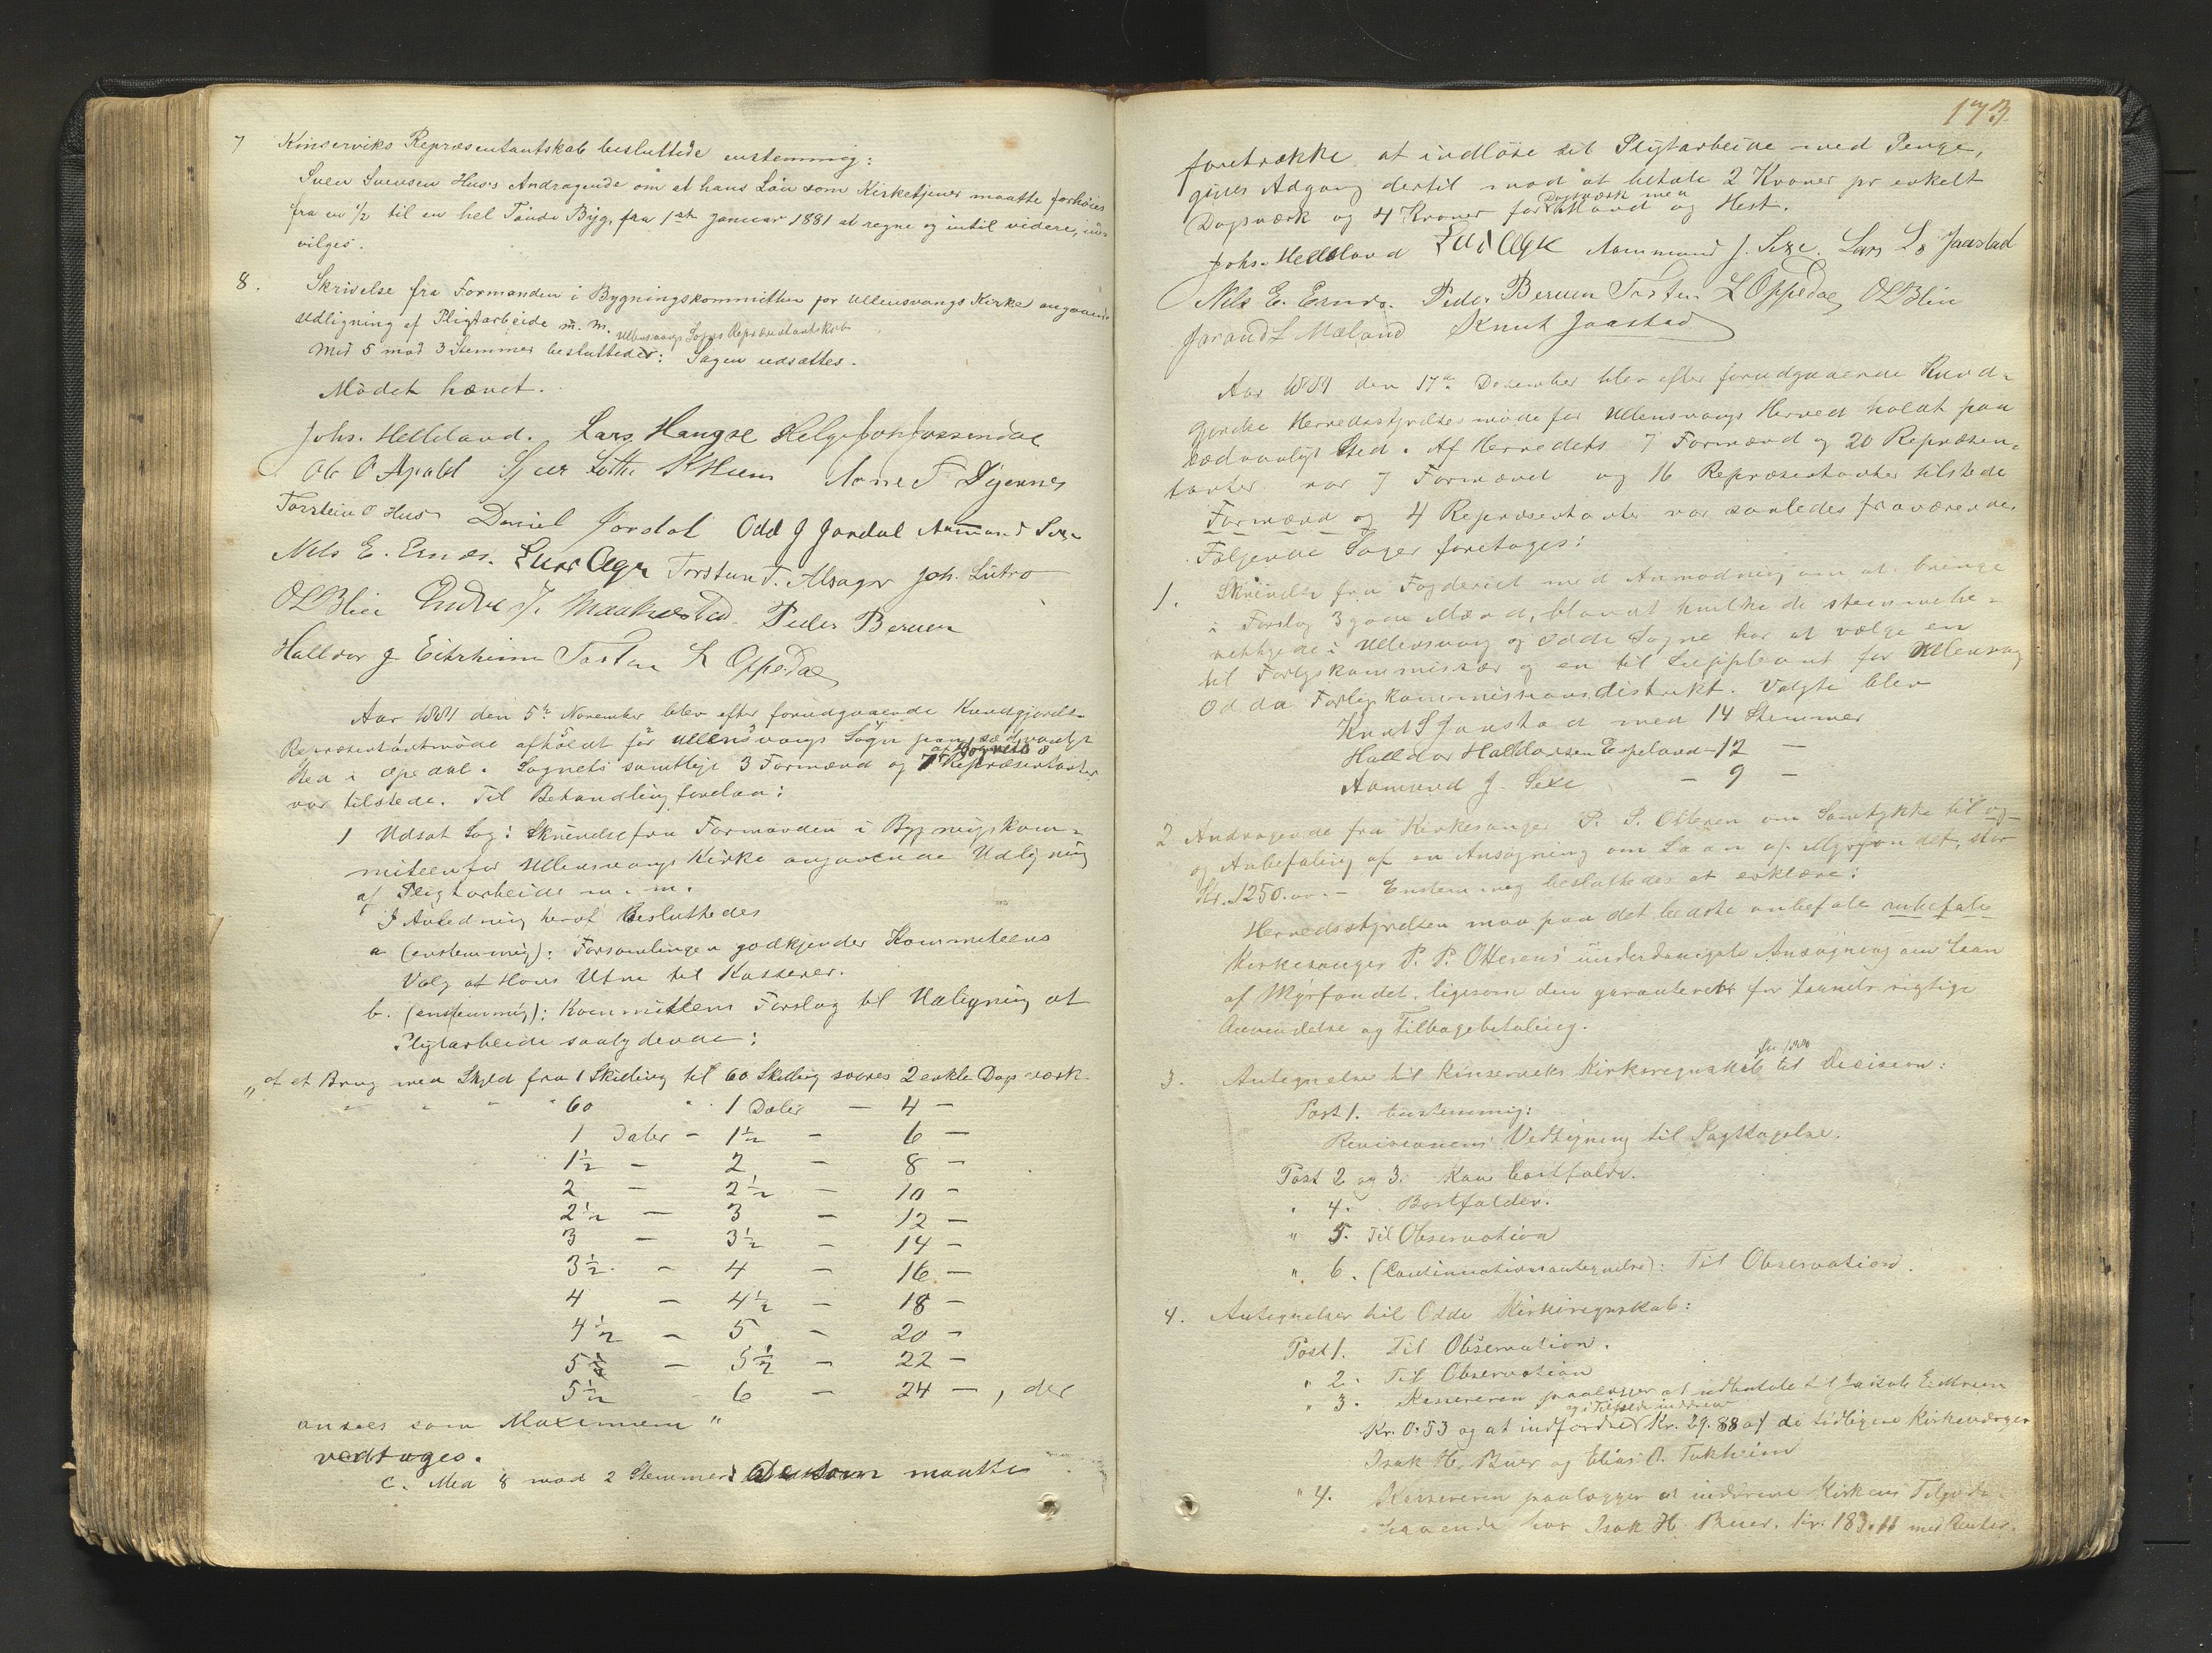 7 Kinserviks Repræsentantskab besluttede enstemmig:
Sven Svensen Hus's Andragende om at hans Løn som Kirketjener maatte forhöies
fra en 1/2 til en hel Tönde Byg, fra 1st Januar 1881 at regne og intil videre, ind-
vilges.
8. Skrivelse fra Formanden i Bygningskommitteen for Ullensvangs Kirke angaaende
Udligning af Pligtarbeide m. m.
Ullensvangs Sogns Repræsentantskab
Med 5 mod 3 Stemmer besluttedes: Sagen udsættes.
Mödet hævet.
Johs. Helleland. Lars Haugse Helge Johs Jossendal
Ole O Apold Sjur Lothe K Hus Arne T Djönnes
Torstein O Hus Daniel Jordal Odd J Jordal Aamund Sexe
Nils E. Ernæs. Lars Aga Torstein T. Alsager Joh. Lutro
O L Blie Endre J. Maakestad. Peder Berven
Halldor J Eitrheim Tosten L Oppedal
Aar 1881 den 5te November blev efter forudgaaende Kundgjörelse
Repræsentantmöde afholdt for Ullensvangs Sogn paa sædvanligt
Sted i Opedal. Sagnets samtlige 3 Formænd og 7 af Sognets 8 Repræsentanter
var tilstede. Til Behandling forelaa:
1 Udsat Sag: Skrivelse fra Formanden i Bygningskom-
miteen for Ullensvangs Kirke angaaende Udligning
af Pligtarbeide m. m.
I Anledning heraf besluttedes
a (enstemmig): Forsamlingen godkjender Kommiteens
Valg af Hans Utne til Kasserer.
b. (enstemmig): Kommitteens Forslag til Udligning af
Pligtarbeide saalydende:
„af et Brug med Skyld fra 1 Skilling til 60 Skilling svares 2 enkle Dagsværk.
" " " " 60 " 1 Daler — 4 —
1 Daler - 1½ — 6 —
1½ — 2 — 8 —
2 — 2½ — 10 —
2½ — 3 — 12 —
3 — 3½ — 14 —
3½ — 4 — 16 —
4 — 4½ — 18 —
4½ — 5 — 20 —
5 — 5½ — 22 —
5½ 6 — 24 —, der
ansees som Maximum"
vedtages.
C. Med 8 mod 2 Stemmer: Dersom maatte
173
foretrække at indløse sit Pligtarbeide med Penge,
gives Adgang dertil mod at betale 2 Kroner pr enkelt
Dagsværk og 4 Kroner for Dagsværk med Mand og Hest.
Johs. Helleland Lars Aga Aammund J. Sexe. Lars L. Jaastad
Nils E. Ernæs. Peder Berven Tosten L Oppedal O L Blie
Jorand L Mæland Knut Jaastad
Aar 1881 den 17de Desember blev efter forudgaaende Kund-
gjorelse Herredsstyrelsesmöde for Ullensvangs Herred holdt paa
sædvanligt Sted. Af Herredets 7 Formænd og 20 Repræsen-
tanter var 7 Formænd og 16 Repræsentanter tilstede
Formænd og 4 Repræsentanter var saaledes fraværende
Følgende Sager foretoges:
1. Skrivelse fra Fogderiet med Anmodning om at bringe
i Forslag 3 gode Mænd, blandt hvilke de stemmebe-
rettigede i Ullensvang og Odde Sogne har at vælge en
til Forligskommisær og en til Suppleant for Ullensvang
Odda Forligskommissionsdistrikt. Valgte blev
Knut S Jaastad med 14 Stemmer
Halldor Halldorsen Espeland - 12 —
Aamund J. Sexe — 9 —
2 Andragende fra Kirkesanger P. P. Ottesen om Samtykke til og
og Anbefaling af en Ansøgning om Laan af Myrfondet, stor
Kr. 1250.00. — Enstemmig besluttedes at erklære:
Herredsstyrelsen maa paa det bedste anbefale anbefale
Kirkesanger P. P. Ottesens underdanigste Ansøgning om Laan
af Myrfondet, ligesom den garanterer for Laanets rigtige
Anvendelse og Tilbagebetaling.
3. Antegnelse til Kinserviks Kirkeregnskab for 1880 til Decision:
Post 1. Enstemmig:
Revisionens Vedtegning til Iagttagelse.
Post 2 og 3. Kan bortfalde.
" 4. Bortfalder.
" 5. Til Observation
" 6. (Continuationsantegnelse): Til Observation.
4. Antegnelser til Odde Kirkeregnskab:
Post 1. Til Observation.
" 2. Til Observation
" 3. Kassereren paalægges at udbetale til Jakob Eidtrein
Kr. 0.53 og at indfordre og i Tilfælde inddrive Kr. 29.88 af de tidligere Kirkeværger
Isak H. Buer og Elias O. Tokheim
" 4. Kassereren paalægges at inddrive Kirkens Tilgode-
havende hos Isak H. Buer, kr. 183.11 med Renter.